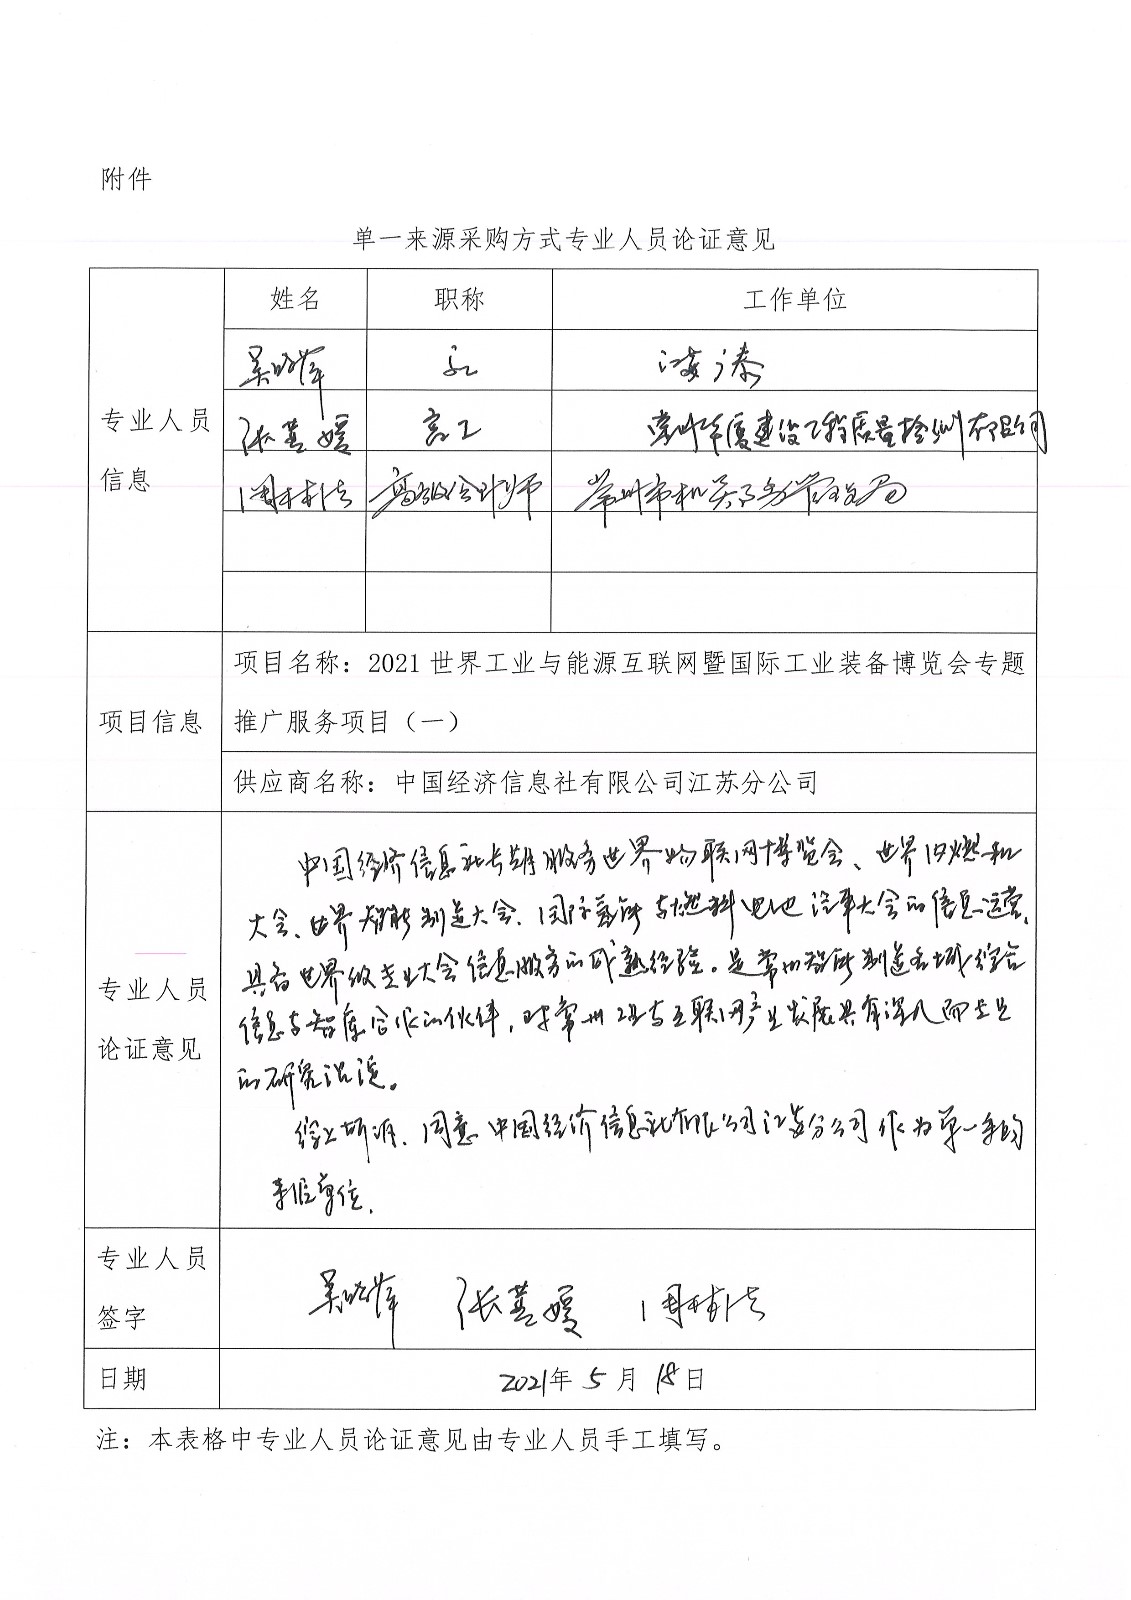 附件
单一来源采购方式专业人员论证意见
姓名 职称 工作单位
专业人员
信息
张菩媛 高工 常州华厦建设工程质量检测有限公司
周林法 高级会计师 常州市机关事务管理局
项目信息
项目名称：2021世界工业与能源互联网暨国际工业装备博览会专题
推广服务项目（一）
供应商名称：中国经济信息社有限公司江苏分公司
专业人员
论证意见
中国经济信息社长期服务世界物联网博览会、世界内燃机
大会、世界智能制造大会、国际氢能与燃料电池汽车大会的信息运营，
具备世界级专业大会信息服务的成熟经验。是常州智能制造名城综合
信息与智库合作的伙伴，对常州工业与互联网产业发展具有深入而
的研究沉淀。
综上所述，同意中国经济信息社有限公司江苏分公司作为单一
来源单位.
专业人员
签字
张菩媛 周林法
日期
2021年 5 月 18 日
注：本表格中专业人员论证意见由专业人员手工填写。